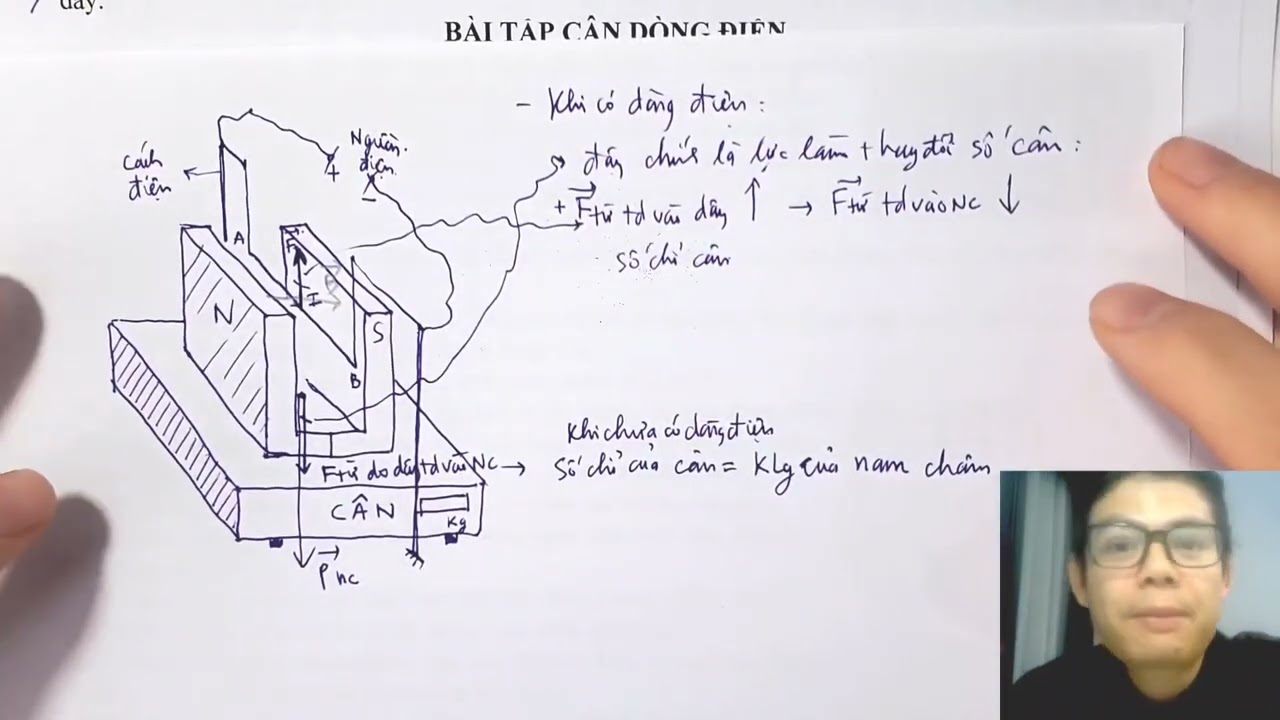 dây.
BÀI TẬP CÂN DÒNG ĐIỆN
- Khi có dòng điện:
đây chính là lực làm thay đổi số cân:
+ F từ td vào dây ↑ → F từ td vào NC ↓
số chỉ cân
Nguồn điện
+
-
cách điện
A
F
B
I
N
S
B
Khi chưa có dòng điện
F từ do dây td vào NC → số chỉ của cân = KLg của nam châm
CÂN
Kg
P nc